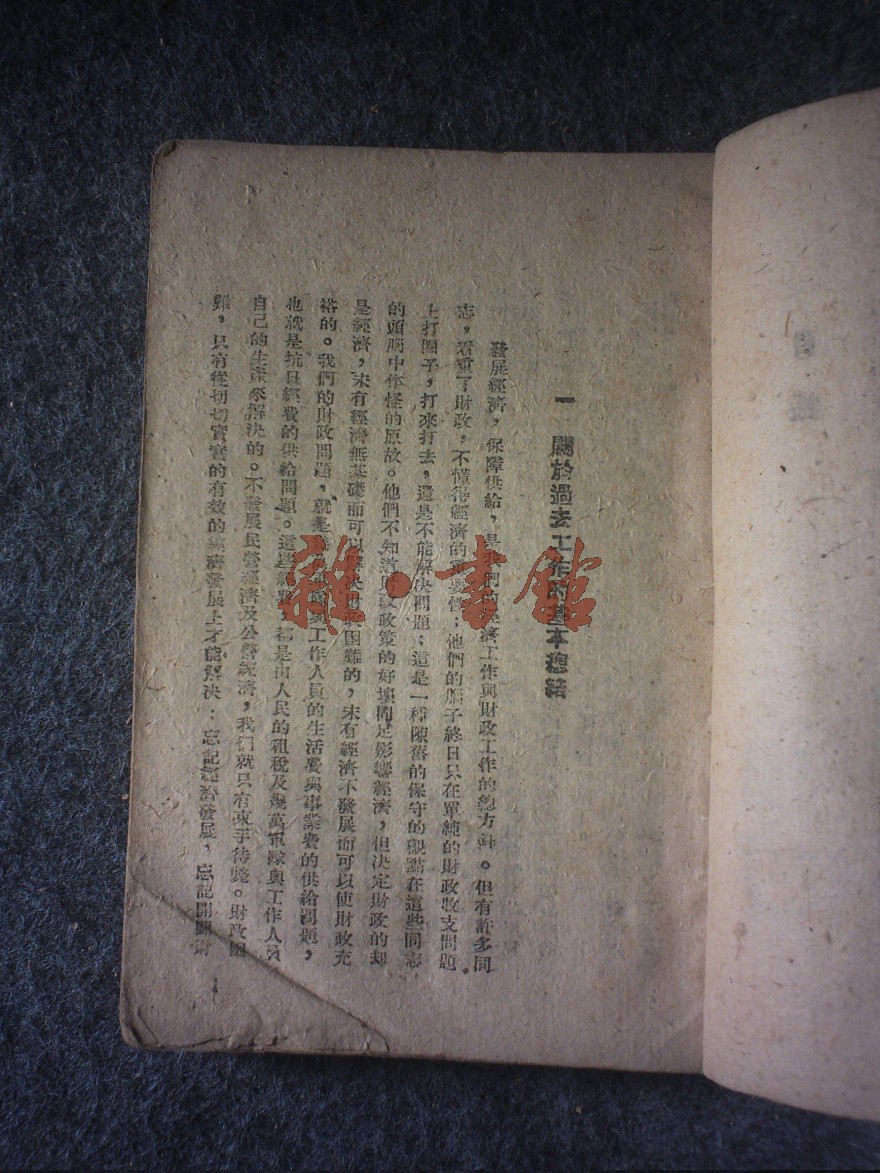 一 關於過去工作的基本總結
發展經濟,保障供給,是我們的經濟工作與財政工作的總方針。但有許多同
志,看重了財政,不懂得經濟的重要性;他們的腦子終日只在單純的財政收支問題
上打圈子,打來打去,還是不能解決問題;這是一種陳舊的保守的觀點在這些同志
的頭腦中作怪的原故。他們不知道財政政策的好壞固足影響經濟,但決定財政的却
是經濟,未有經濟無基礎而可以解決財政困難的,未有經濟不發展而可以使財政充
裕的。我們的財政問題,就是幾萬軍隊與工作人員的生活費與事業費的供給問題,
也就是抗日經費的供給問題。這些經費,都是由人民的租稅及幾萬軍隊與工作人員
自己的生產來解決的。不發展民營經濟及公營經濟,我們就只有束手待斃。財政困
難,只有從切切實實的有效的經濟發展上才能解決;忘記經濟發展,忘記開闢財
雜·書館